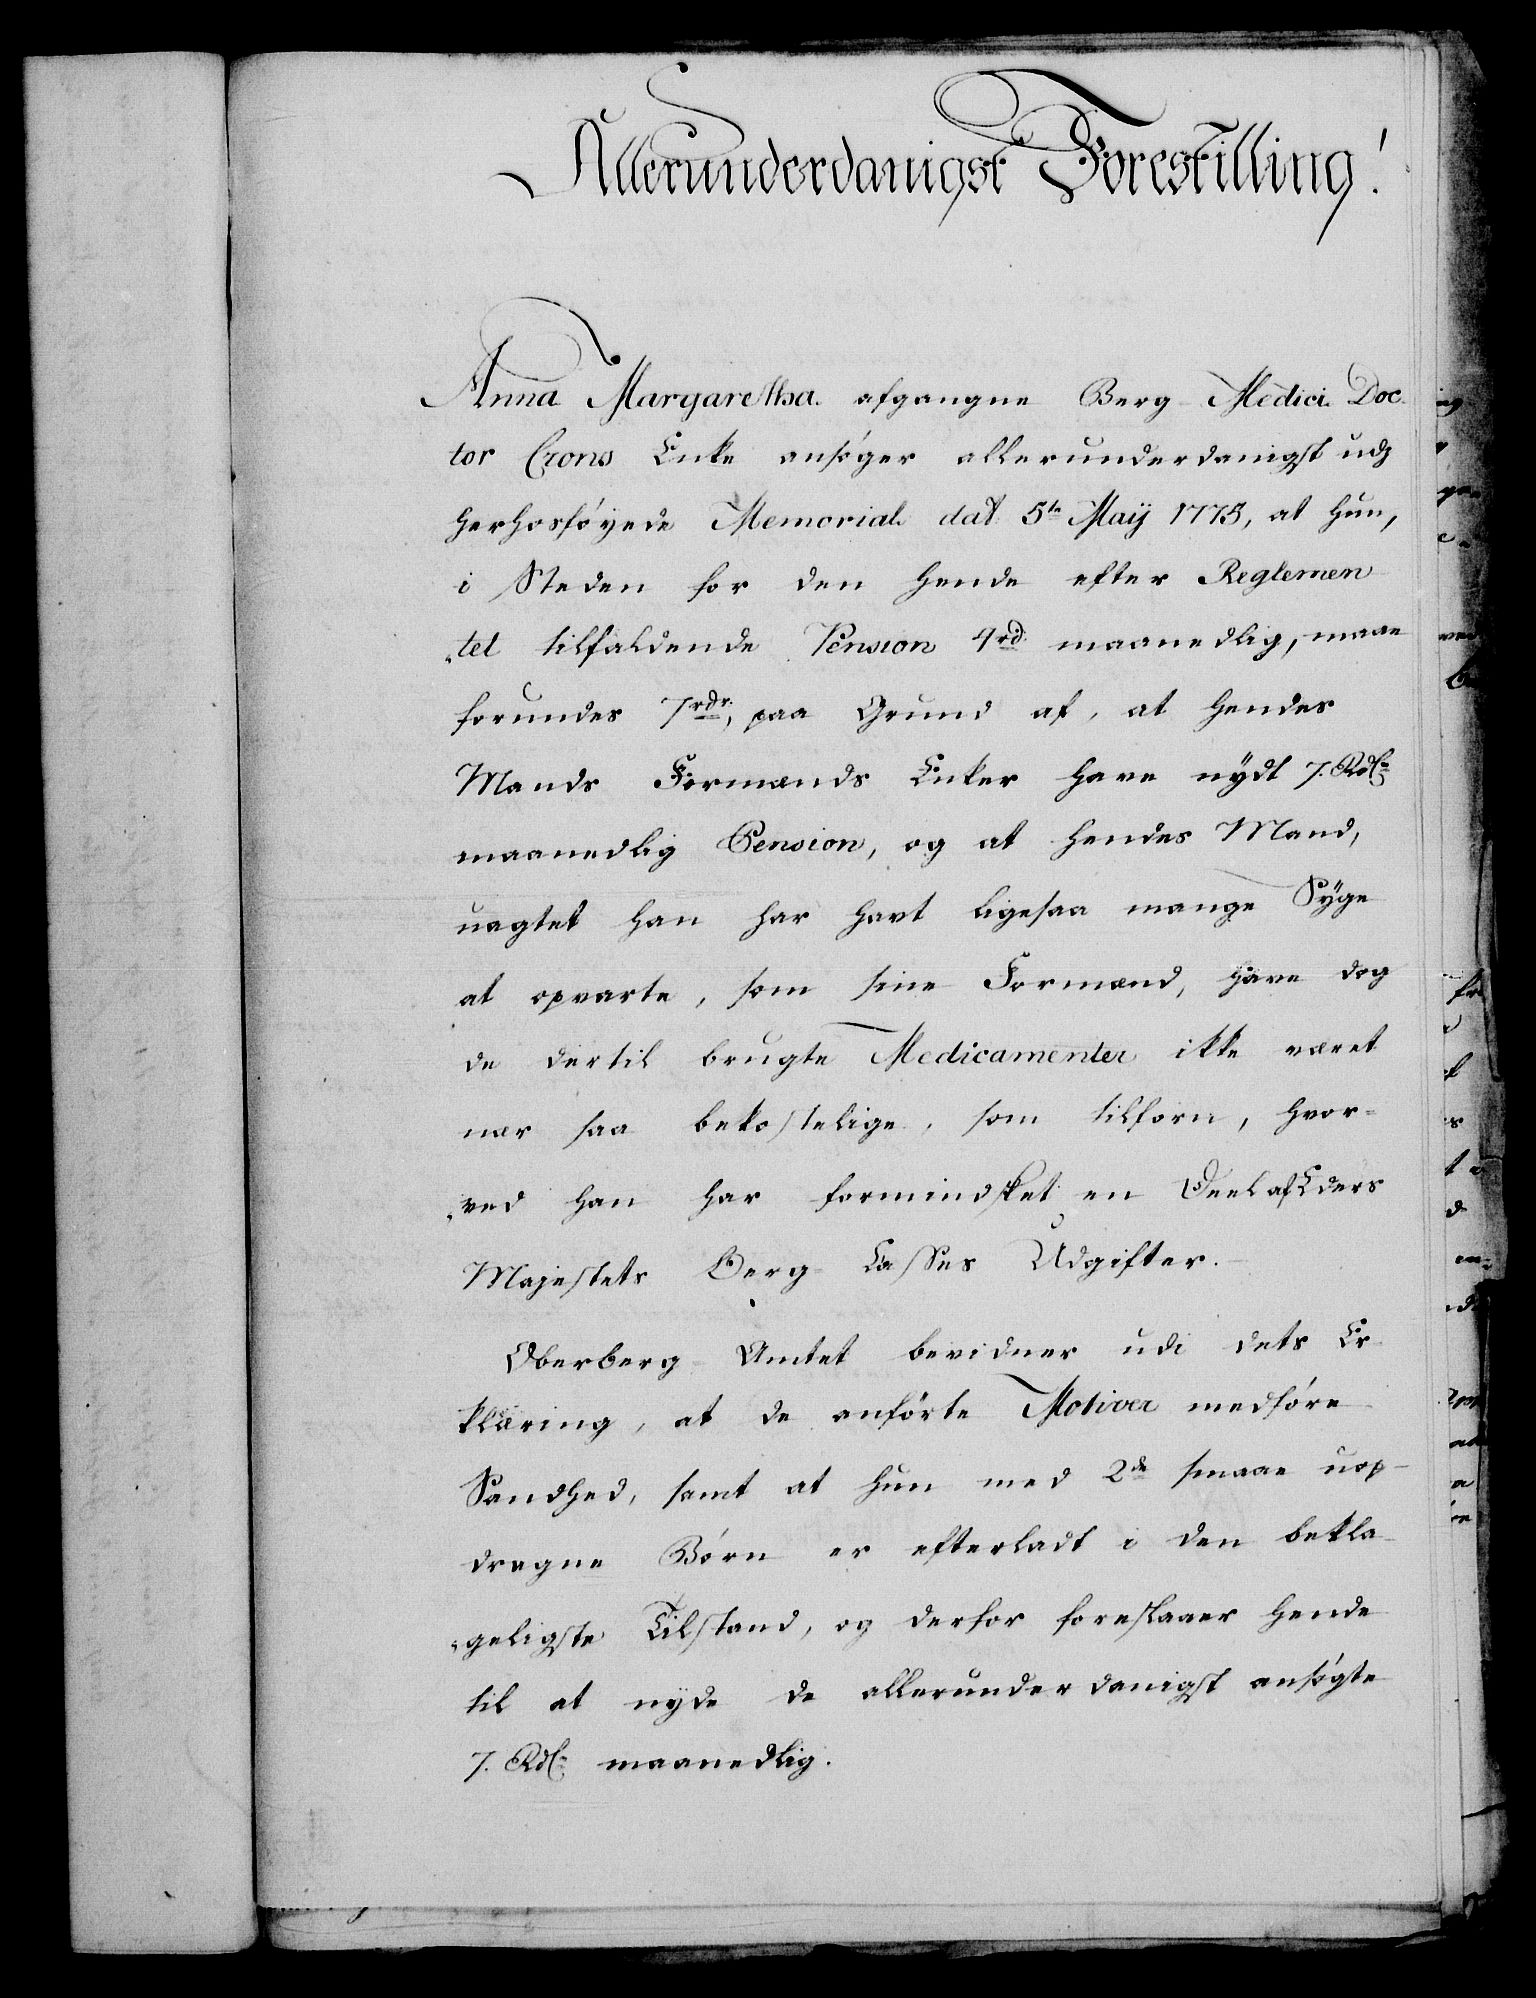 Allerunderdanigst Forestilling!
Anna Margaretha afgangne Berg-Medici Doc
tor Crons Enke ansøger allerunderdanigst udj
herhosføyede Memorial dat 5te Maij 1775, at hun,
i Steden for den hende efter Reglemen
„tet tilfaldende Pension 4rd maanedlig, maae
forundes 7rdr, paa Grund af, at hendes
Mands Formænds Enker have nÿdt 7. Rdlr
maanedlig Pension, og at hendes Mand,
uagtet han har havt ligesaa mange Sÿge
at opvarte, som sine Formænd, have dog
de dertil brugte Medicamenter ikke været
nær saa bekostelige, som tilforn, hvor=
„ved han har formindsket en Deel af Eders
Majestets Berg-Casses Udgifter.
Oberberg-Amtet bevidner udi dets Er
klæring, at de anførte Motiver medføre
Sandhed, samt at hun med 2de smaae uop-
dragne Børn er efterladt i den bekla
„geligste Tilstand, og derfor foreslaaer hende
til at nyde de allerunderdanigst ansøgte
7. Rdlr maanedlig.